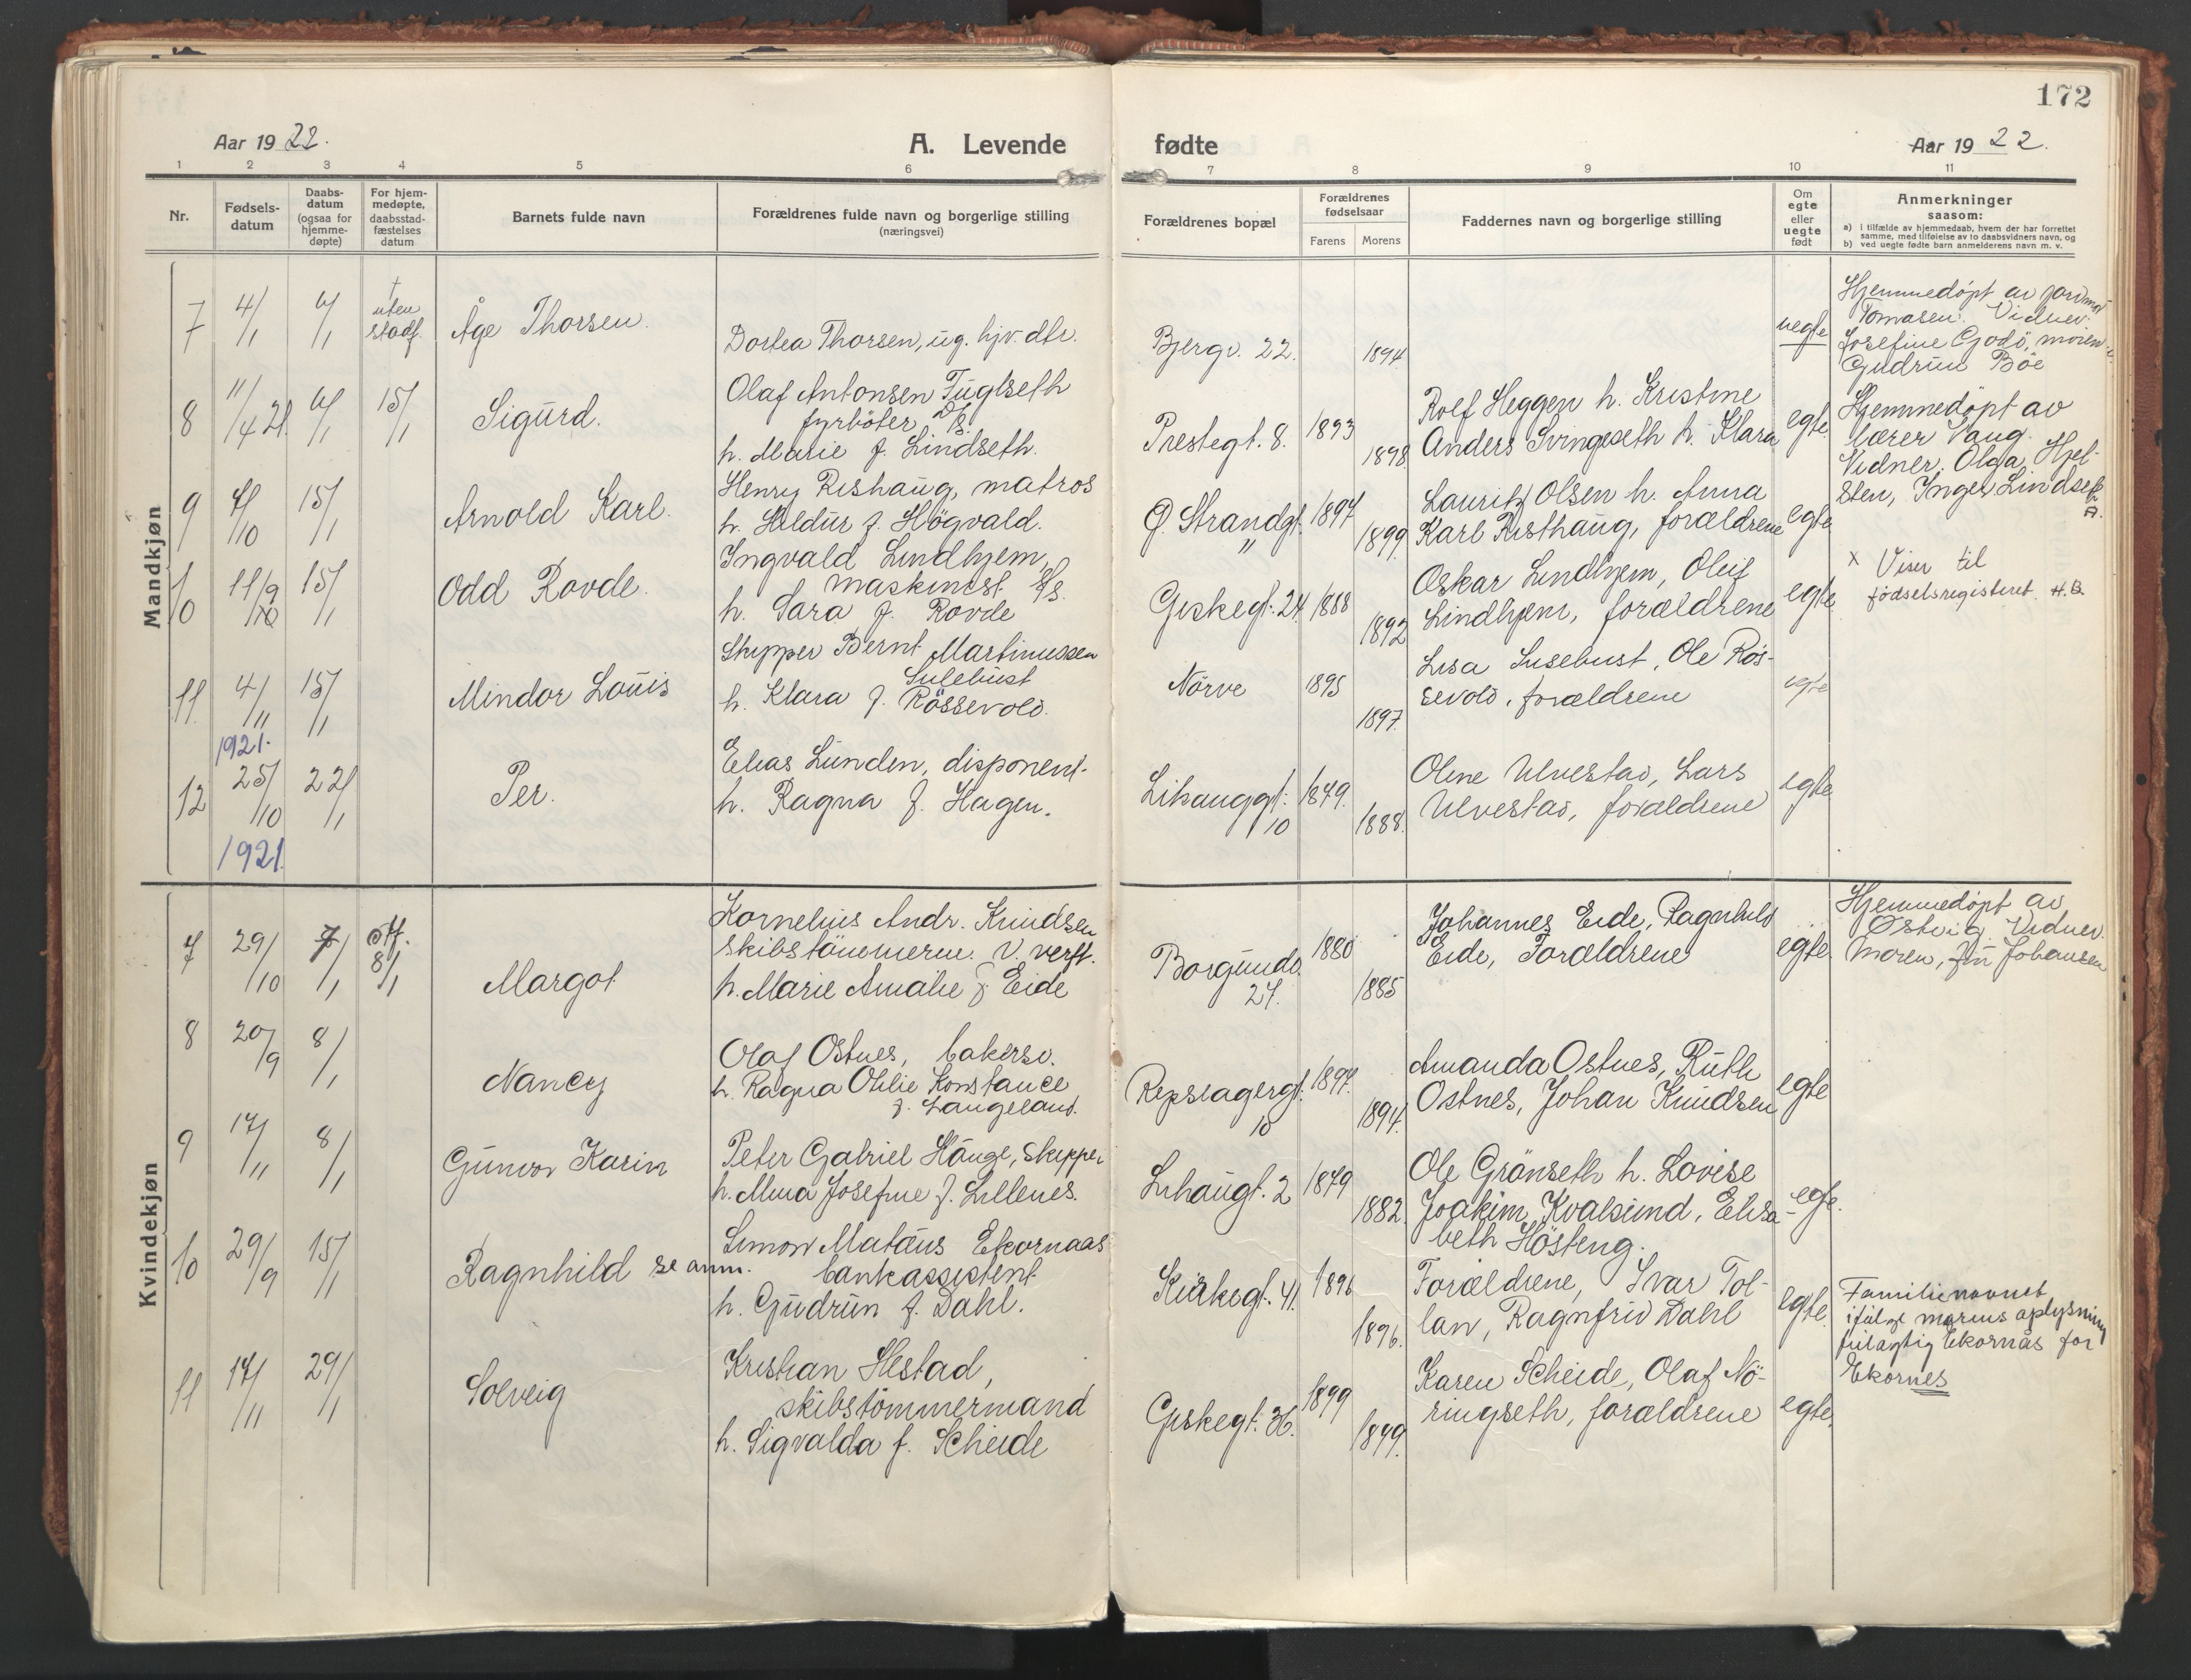 172
Aar 1922.
A. Levende
fødte
Aar 1922.
1 2 3 4 5 6 7 8 9 10 11
Nr.
Fødsels-
datum
Daabs-
datum
(ogsaa for
hjemme-
døpte)
For hjem-
medøpte,
daabsstad-
fæstelses
datum
Barnets fulde navn
Forældrenes fulde navn og borgerlige stilling
(næringsvei)
Forældrenes bopæl
Forældrenes
fødselsaar
Farens
Morens
Faddernes navn og borgerlige stilling
Om
egte
eller
uegte
født
Anmerkninger
saasom:
a) i tilfælde av hjemmedaab, hvem der har forrettet
samme, med tilføielse av to daabsvidners navn, og
b) ved uegte fødte barn anmelderens navn m. v.
Mandkjøn
7 4/1 6/1
uten
stadf.
Åge Thorsen.
Dortea Thorsen, ug. hjv. dtr.
Bjergv. 22.
1894
uegte
Hjemmedøpt av jordmor
Tomasen. Vidner:
Josefine Godö, moren
Gudrun Böe
8 11/4 21. 6/1 15/1
Sigurd.
Olaf Antonsen Fuglseth
fyrböter
h. Marie f. Lindseth.
Prestegt. 8.
1893
1898
Rolf Heggen h. Kristine
Anders Svingeseth h. Klara
egte.
Hjemmedøpt av
lærer Vaag.
Vidner. Olga Hjel-
sten, Inger Lindseth
9 /10 15/1
Arnold Karl.
Henry Rishaug, matros
h. Hildur f. Högvald.
Ø. Strandgt.
"
1894
1899
Lauritz Olsen h. Anna
Karl Risthaug, forældrene
egte
10 11/9 15/1
Odd Rovde.
Ingvald Lindhjem,
maskinist
h. Sara f. Rovde
Giskegt. 24.
1888
1892
Oskar Lindhjem, Oluf
Lindhjem, forældrene
egte
x Viser til
fødselsregisteret. H.B.
11 4/11 15/1
1921.
Mindor Louis
Skipper Bernt Martinussen
Sulebust
h. Klara f. Rössevold.
Nörve
1895
1897.
Lisa Susebust, Ole Rös-
sevold, forældrene
egte
12 25/10 22/1
1921.
Per.
Elias Lunden, disponent.
h. Ragna f. Hagen.
Lihauggt.
10
1879.
1888.
Oline Ulvestad, Lars
Ulvestad, forældrene
egte
Kvindekjøn
7 29/10 7/1
8/1
Margot
Kornelius Andr. Knudsen
skibstömmerm. V. verft.
h. Marie Amalie f. Eide
Borgundv.
27.
1880
1885
Johannes Eide, Ragnhild
Eide, Forældrene
egte.
Hjemmedøpt av
Østvig. Vidner.
Moren, Johansen
8 20/9 8/1
Nancy
Olaf Ostnes, bakersv.
h. Ragna Otilie Konstance
f. Langeland.
Repslagergt.
10
1897.
1894.
Amanda Ostnes, Ruth
Ostnes, Johan Knudsen
egte
9 17/11 8/1
Gunvor Karin
Peter Gabriel Hauge, Skipper
h. Mina Josefine f. Lillenes.
Lihaugt. 2
1879
1882.
Ole Grönseth h. Lovise
Joakim Kvalsund, Elisa-
beth Hösteng.
egte.
10 29/9 15/1
Ragnhild se anm.
Simon Matäus Ekornaas
bankassistent
h. Gudrun f. Dahl.
Kirkegt. 41.
1896
1896.
Forældrene, Ivar Tol-
lan, Ragnfrid Dahl
egte.
Familienavnet
ifølge morens oplysning
feilagtig Ekornås for
Ekornes
11 17/11 29/1
Solveig
Kristian Hestad,
skibstömmermand
h. Sigvalda f. Scheide
Giskegt. 36.
1899
1899.
Karen Scheide, Olaf Nö-
ringseth, forældrene
egte